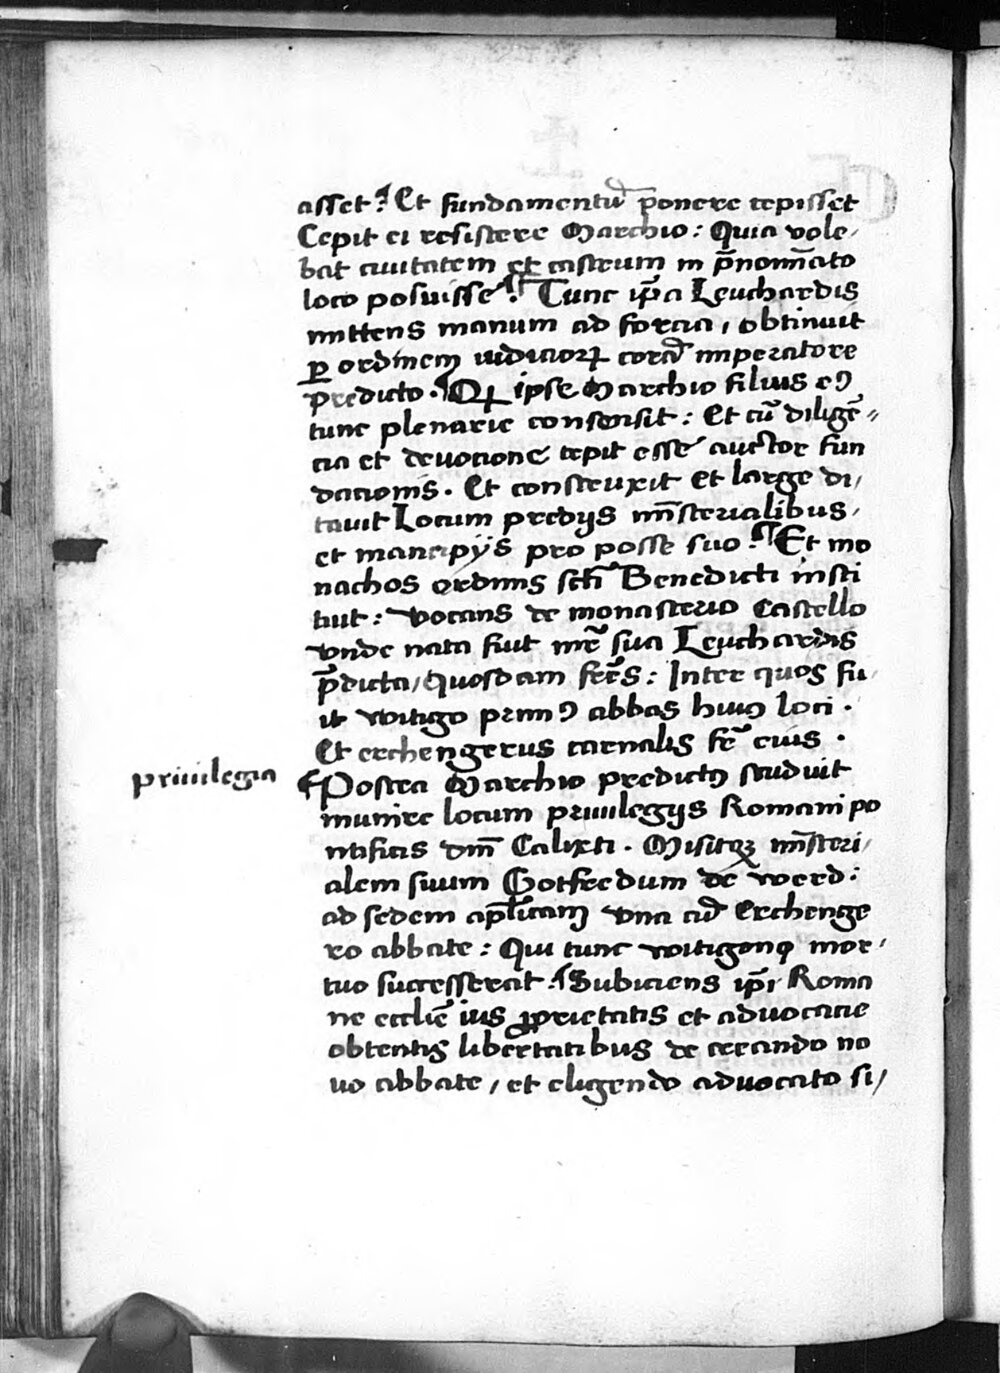 asset? Et fundamentū p̄onere cepisset
Cepit ei resistere Marchio: Quia vole,
bat ciuitatem et castrum in p̄nomīato
loco posuisse. Tunc ip̄a Leuchardis
mittens manum ad forcia, obtinuit
ꝑ ordinem iudicioꝝ corā imperatore
predicto. Qꝛ ipse Marchio filius eꝰ
tunc plenarie consensit: Et cū diligē⸗
cia et deuocione cepit esse auctor fun
dacionis. Et construxit et large di,
tauit Locum predijs mīsterialibus,
et mancipijs pro posse suo. Et mo
nachos ordinis scti Benedicti insti
tuit: vocans de monasterio Castello
vnde nata fuit mr̄ sua Leuchardis
p̄dicta, quosdam fr̄es: Inter quos fu,
it witigo primꝰ abbas huiꝰ loci.
Et erchengerus carnalis fr̄ eius.
priuilegia
Postea Marchio predictꝰ studuit
munire locum priuilegijs Romani po
ntificis dm̄ Calixti. Misitqꝫ mīsteri,
alem suum Gotfredum de werd:
ad sedem ap̄licam vna cū Erchenge
ro abbate: Qui tunc witigonꝭ mor,
tuo successerat. Subiciens ip̄i Roma
ne eccl̄ie ius ꝓprietatis et aduocacie
obtentis libertatibus de creando no
uo abbate, et eligendo aduocato si,